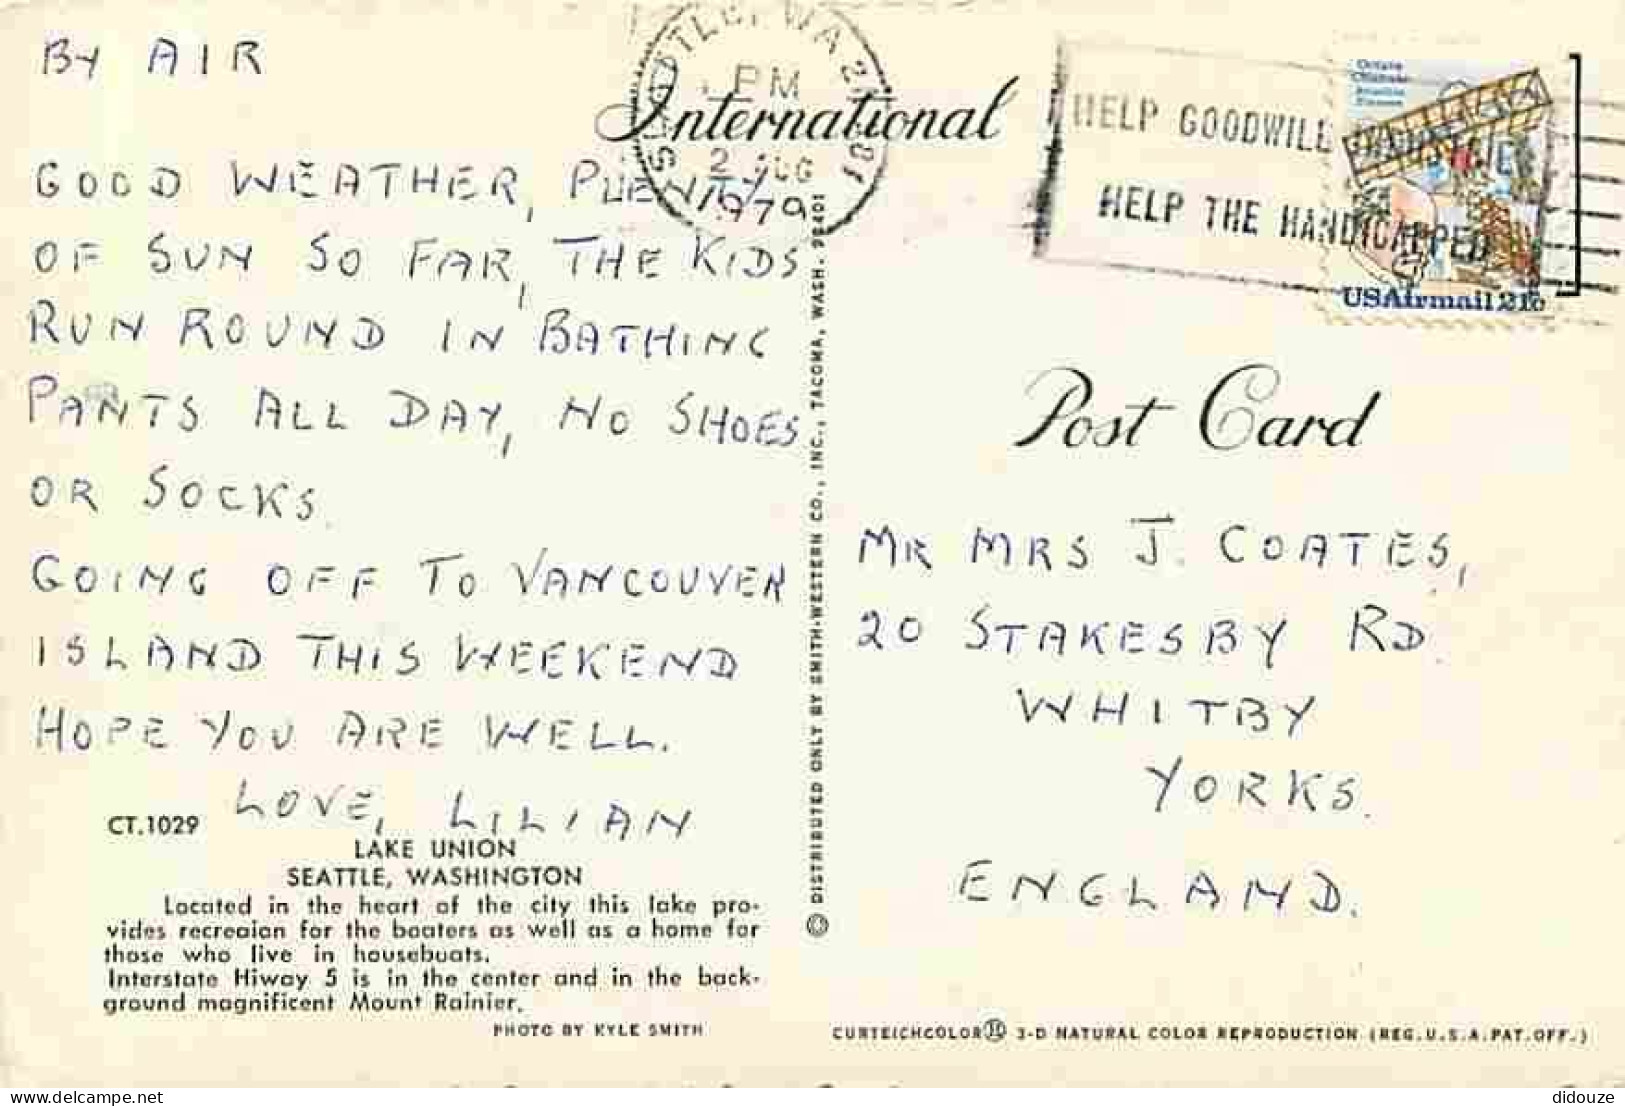 BY AIR
GOOD WEATHER, PLENTY
OF SUN SO FAR, THE KIDS
RUN ROUND IN BATHING
PANTS ALL DAY, NO SHOES
OR SOCKS.
GOING OFF TO VANCOUVER
ISLAND THIS WEEKEND
HOPE YOU ARE WELL.
LOVE, LILIAN
CT.1029
LAKE UNION
SEATTLE, WASHINGTON
Located in the heart of the city this lake pro-
vides recreaion for the boaters as well as a home for
those who live in houseboats.
Interstate Hiway 5 is in the center and in the back-
ground magnificent Mount Rainier.
PHOTO BY KYLE SMITH
© DISTRIBUTED ONLY BY SMITH-WESTERN CO., INC., TACOMA, WASH. 98401
International
Post Card
SEATTLE, WA
PM
2 AUG
1979
HELP GOODWILL
HELP THE HANDICAPPED
Octave
Chanute
Aviation
Pioneer
USAirmail 21c
MR MRS J. COATES,
20 STAKESBY RD.
WHITBY
YORKS.
ENGLAND.
CURTEICHCOLOR 3-D NATURAL COLOR REPRODUCTION (REG.U.S.A.PAT.OFF.)
didouze